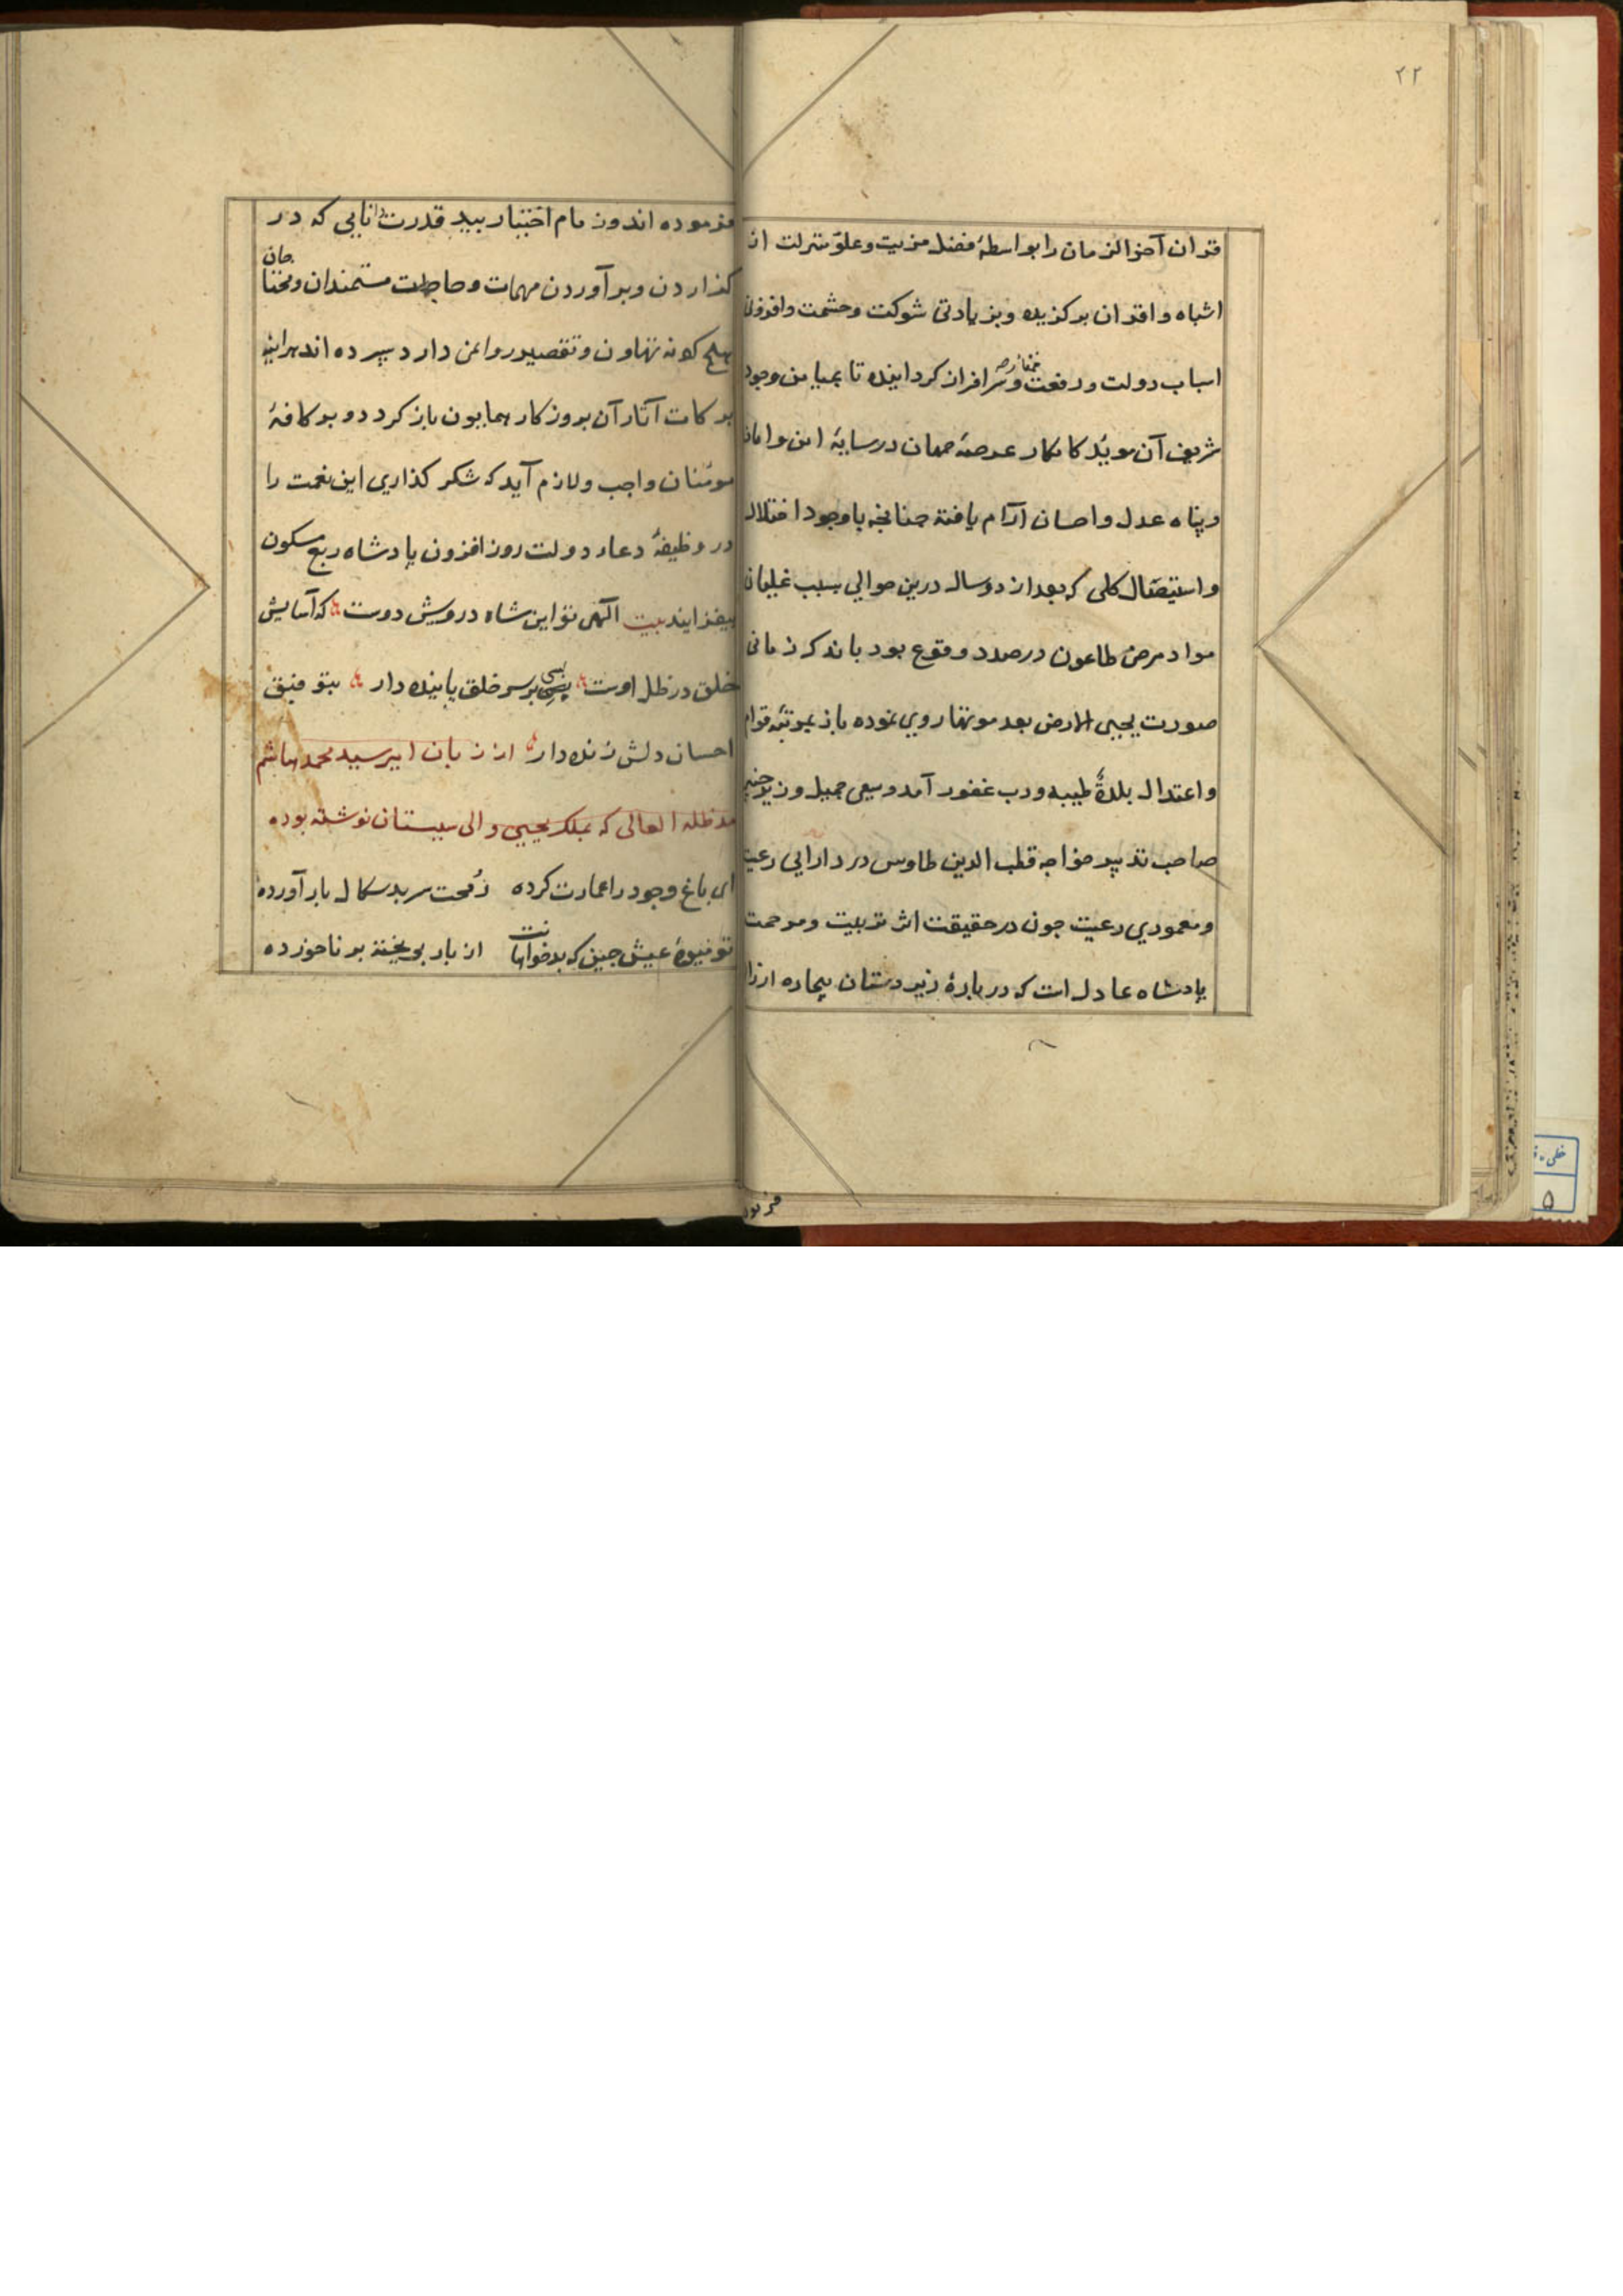 ۲۲
قران آخر الزمان را بواسطهٔ فضل مزیت و علوّ منزلت از
اشباه و اقران برکزیده و بزیادتی شوکت و حشمت و افزونی
اسباب دولت و رفعت و سرافراز کردانیده تا بمیامن وجود
شریف آن مویّد کامکار عرصهٔ جهان در سایهٔ امن و امان
و پناه عدل و احسان آرام یافته چنانچه باوجود اختلال
و استیصال کلی که بعد از دو سال درین حوالی بسبب غلیان
مواد مرض طاعون در صدد وقوع بود باندک زمانی
صورت یحیی الارض بعد موتها روی نموده باز بمرتبهٔ قوام
و اعتدال بلدةٌ طیبه و رب غفور آمد و سعی جمیل وزیر
صاحب تدبیر خواجه قطب الدین طاوس در دارایی رعیت
و معموری رعیت چون در حقیقت اثر تربیت و مرحمت
پادشاه عادل است که دربارهٔ زیردستان بیچاره ارزا
فرمود
فرموده اند و زمام اختیار بید قدرت دانایی که در
کذاردن و برآوردن مهمات و حاجات مستمندان و محتا
جان
بهیچ کونه تهاون و تقصیر روا نمی دارد سپرده اند هراینه
برکات آثار آن بروزکار همایون باز کردد و بر کافهٔ
مومنان واجب و لازم آید که شکر کذاری این نعمت را
در وظیفهٔ دعاء دولت روز افزون پادشاه ربع مسکون
بیفزایند بیت الهی تو این شاه درویش دوست که آسایش
خلق در ظل اوست بسی بر سر خلق پاینده دار بتوفیق
احسان دلش زنده دار از زبان امیر سید محمد هاشم
مد ظله العالی که بملک یحیی والی سیستان نوشته بوده
ای باغ وجود را عمارت کرده رُمحت سر بدسکال بار آورده
تو میوهٔ عیش چین که بدخواهانت از بار بریخته بر ناخورده